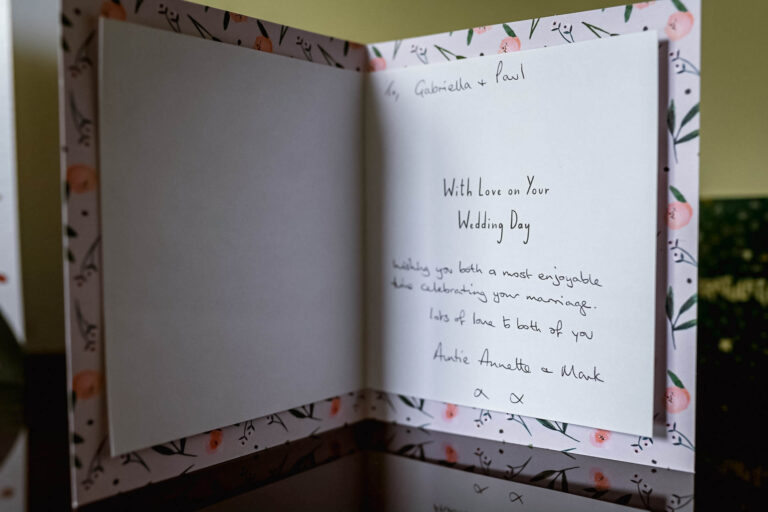 To, Gabriella + Paul
With Love on Your
Wedding Day
Wishing you both a most enjoyable
time celebrating your marriage.
lots of love to both of you
Auntie Annette & Mark
x x